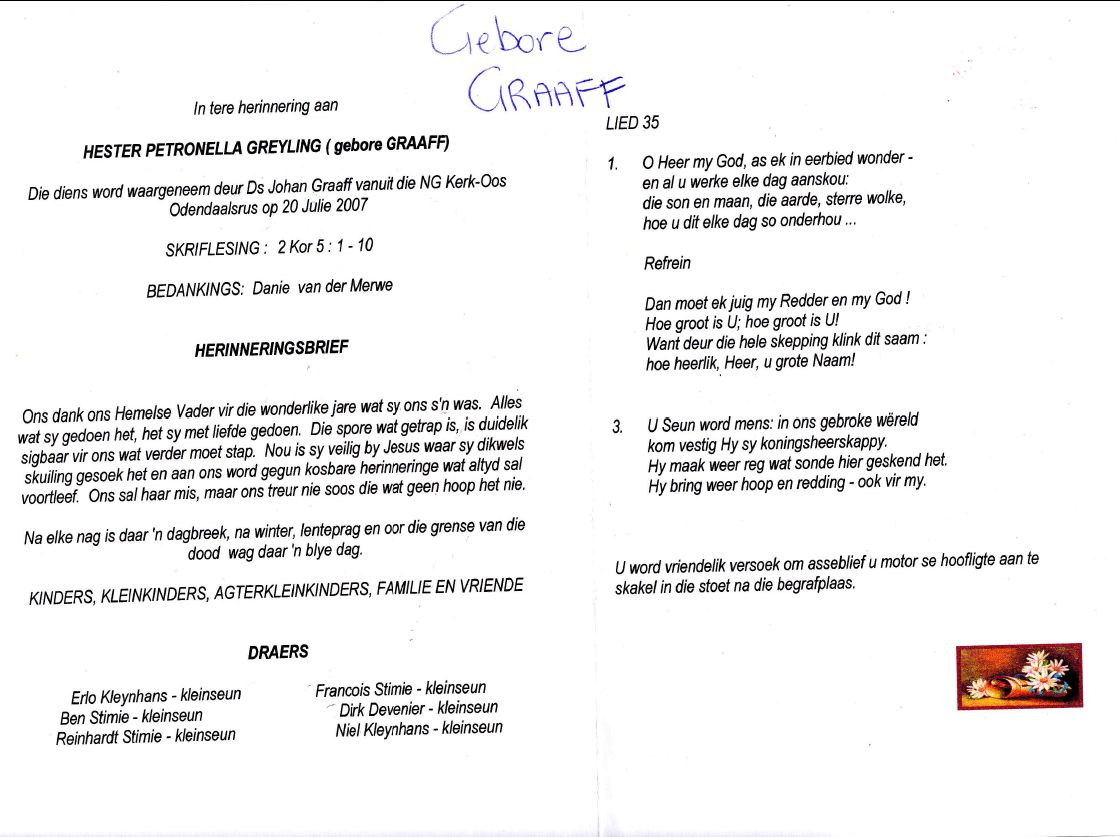 Gebore
GRAAFF
In tere herinnering aan
HESTER PETRONELLA GREYLING ( gebore GRAAFF)
Die diens word waargeneem deur Ds Johan Graaff vanuit die NG Kerk-Oos
Odendaalsrus op 20 Julie 2007
SKRIFLESING : 2 Kor 5 : 1 - 10
BEDANKINGS: Danie van der Merwe
HERINNERINGSBRIEF
Ons dank ons Hemelse Vader vir die wonderlike jare wat sy ons s'n was. Alles
wat sy gedoen het, het sy met liefde gedoen. Die spore wat getrap is, is duidelik
sigbaar vir ons wat verder moet stap. Nou is sy veilig by Jesus waar sy dikwels
skuiling gesoek het en aan ons word gegun kosbare herinneringe wat altyd sal
voortleef. Ons sal haar mis, maar ons treur nie soos die wat geen hoop het nie.
Na elke nag is daar 'n dagbreek, na winter, lenteprag en oor die grense van die
dood wag daar 'n blye dag.
KINDERS, KLEINKINDERS, AGTERKLEINKINDERS, FAMILIE EN VRIENDE
DRAERS
Erlo Kleynhans - kleinseun
Ben Stimie - kleinseun
Reinhardt Stimie - kleinseun
Francois Stimie - kleinseun
Dirk Devenier - kleinseun
Niel Kleynhans - kleinseun
LIED 35
1. O Heer my God, as ek in eerbied wonder -
en al u werke elke dag aanskou:
die son en maan, die aarde, sterre wolke,
hoe u dit elke dag so onderhou ...
Refrein
Dan moet ek juig my Redder en my God !
Hoe groot is U; hoe groot is U!
Want deur die hele skepping klink dit saam :
hoe heerlik, Heer, u grote Naam!
3. U Seun word mens: in ons gebroke wêreld
kom vestig Hy sy koningsheerskappy.
Hy maak weer reg wat sonde hier geskend het.
Hy bring weer hoop en redding - ook vir my.
U word vriendelik versoek om asseblief u motor se hoofligte aan te
skakel in die stoet na die begrafplaas.